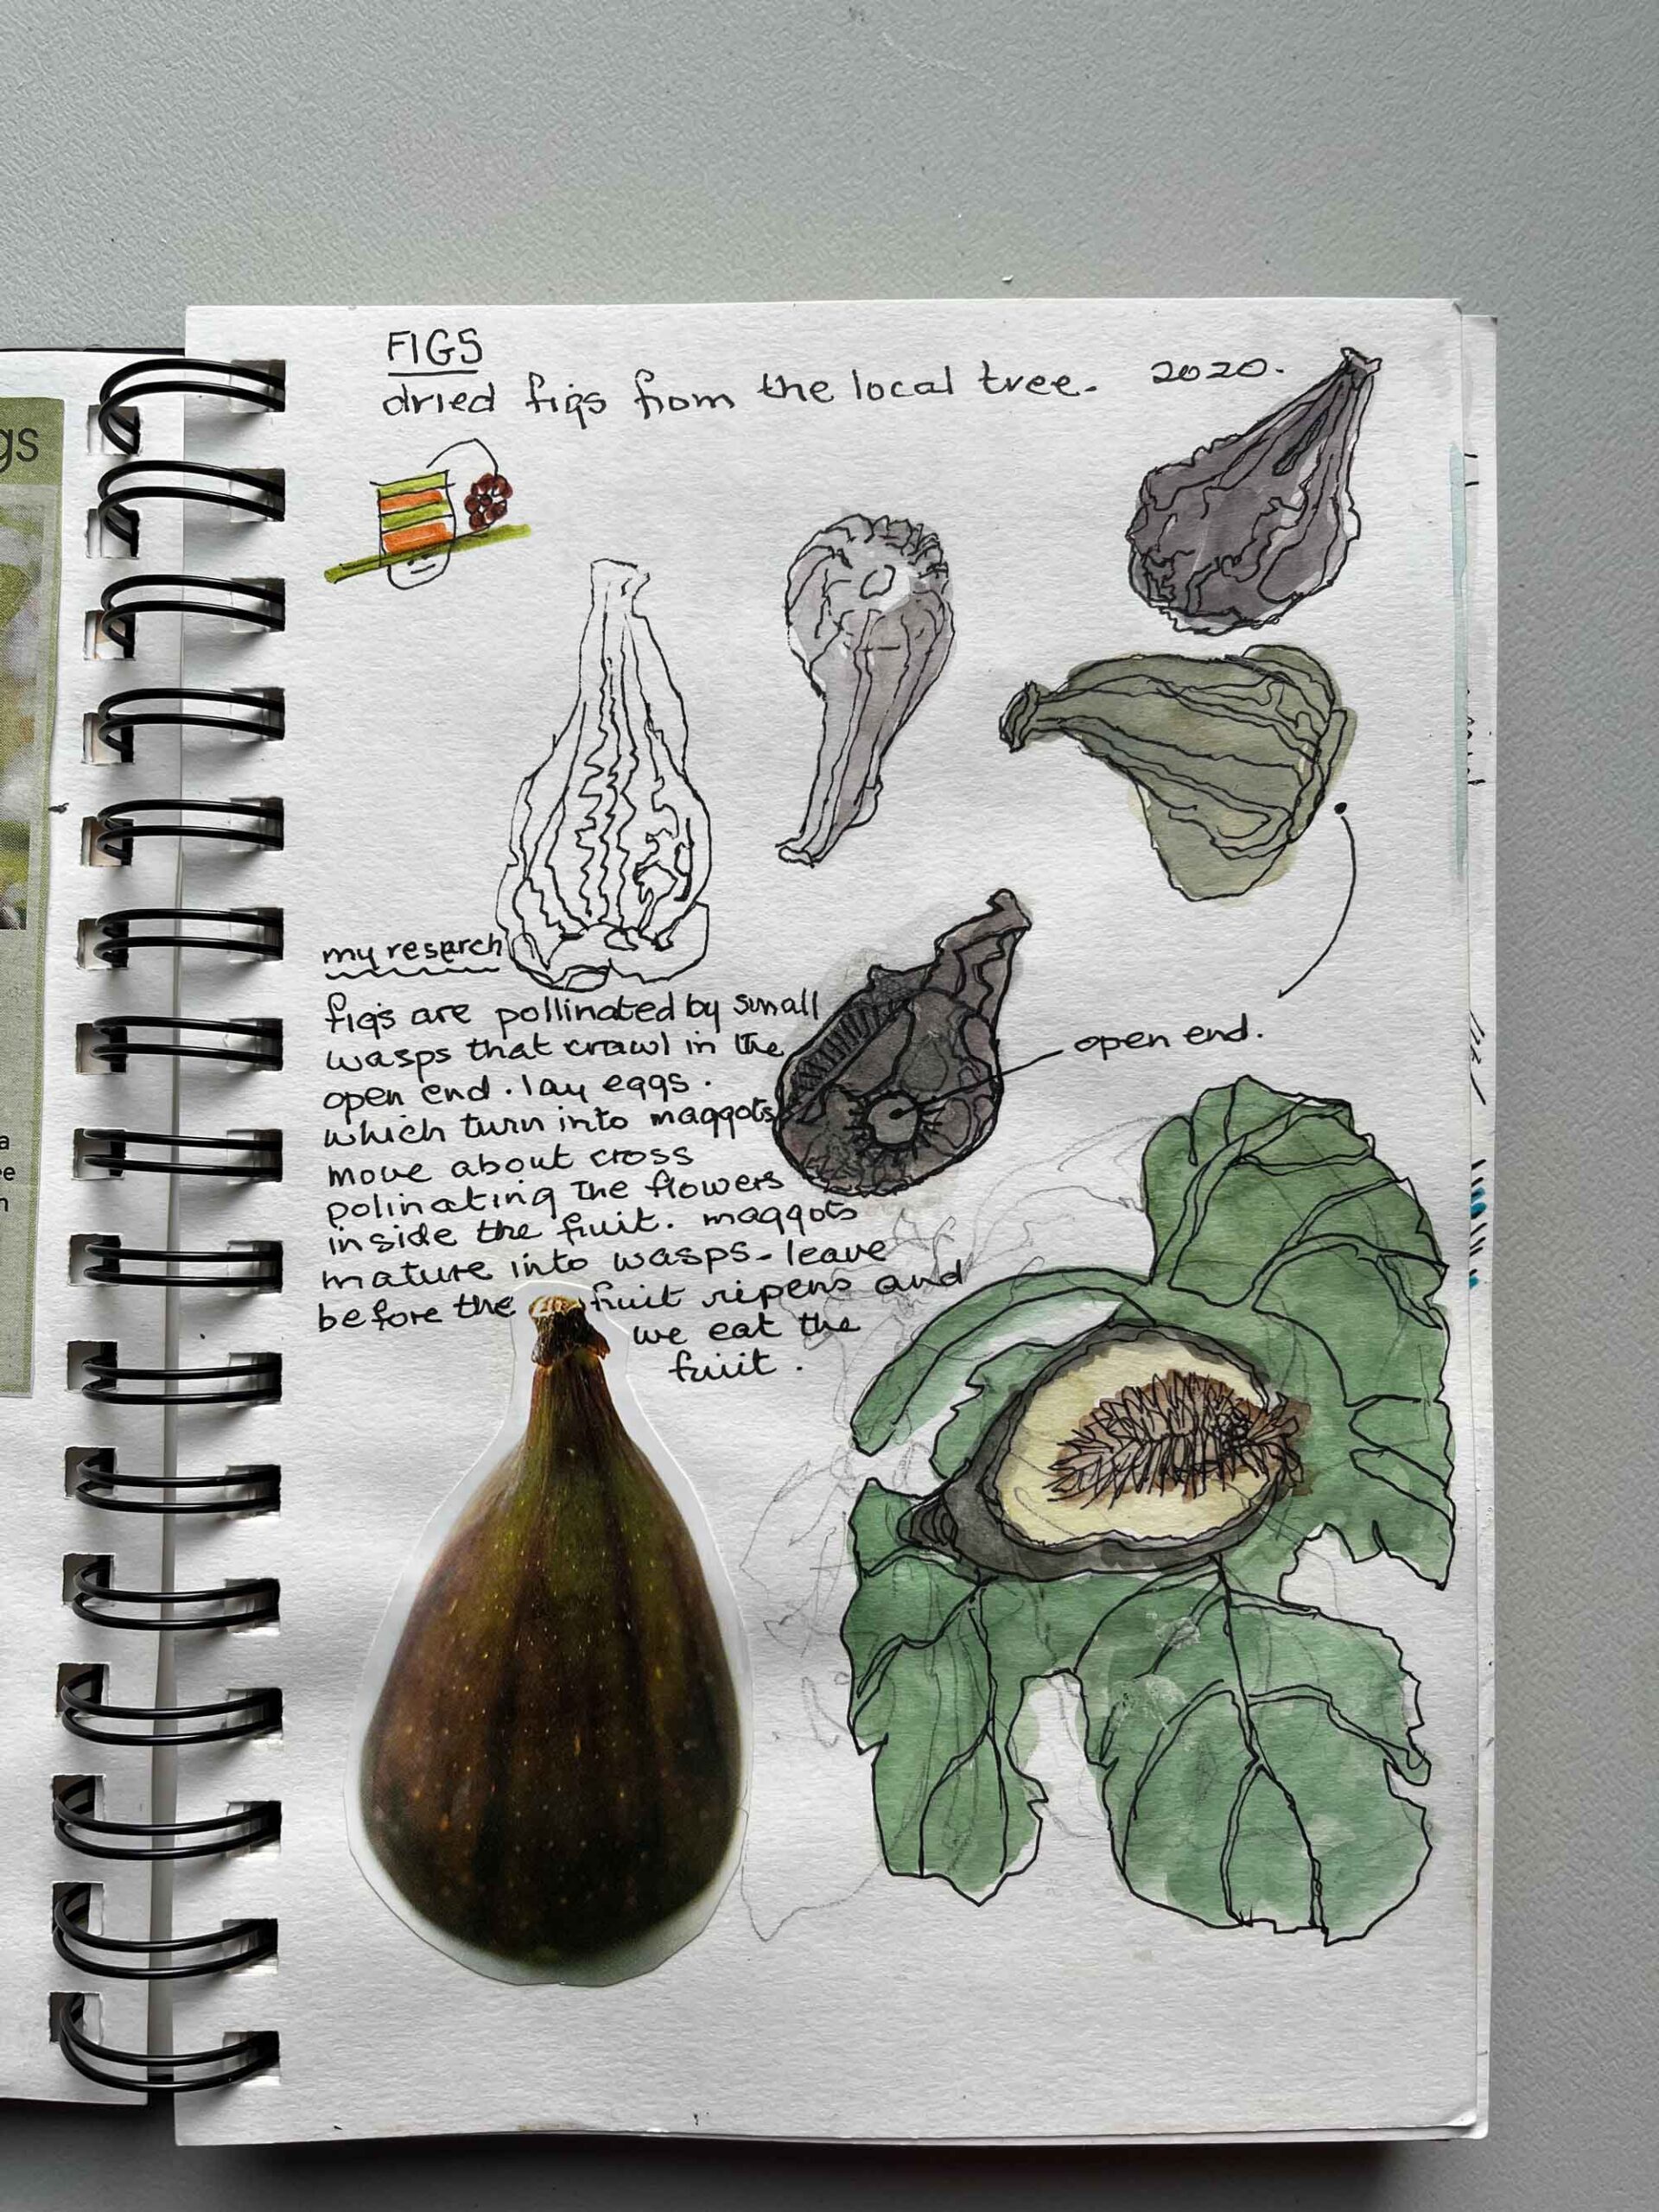 FIGS
dried figs from the local tree. 2020.
my reserch
figs are pollinated by small
wasps that crawl in the
open end. lay eggs.
which turn into maggots
move about cross
polinating the flowers
inside the fruit. maggots
mature into wasps - leave
before the fruit ripens and
we eat the
fruit.
open end.
gs
a
e
n